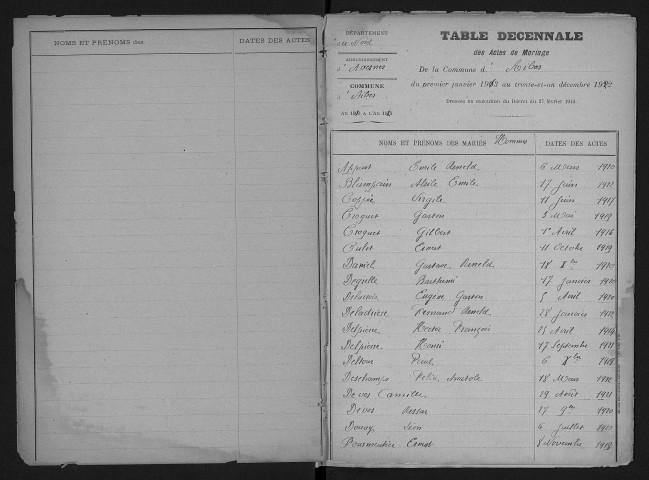 NOMS ET PRÉNOMS des
DATES DES ACTES
DÉPARTEMENT
du Nord
ARRONDISSEMENT
d'Avesnes
COMMUNE
d'Aibes
TABLE DECENNALE
des Actes de Mariage
De la Commune d' Aibes
du premier janvier 1913 au trente-et-un décembre 1922
Dressée en exécution du Décret du
NOMS ET PRÉNOMS DES MARIÉS Hommes
DATES DES ACTES
Appart Emile Arnold 6 Mars 1920
Blampain Alcide Emile 17 Juin 1922
Coppin Virgile 11 Juin 1917
Croquet Gaston 3 Mai 1919
Croquet Gilbert 1er Avril 1916
Culot Ernest 11 Octobre 1919
Daniel Gustave 18 Xbre 1920
Degulle Barthémi 17 Janvier 1920
Eugène Gaston 5 Avril 1920
Deladrière Fernand Arnold 28 Janvier 1922
Delpierre Hector François 25 Avril 1914
Delpierre Henri 17 Septembre 1921
Deltour Paul 6 Xbre
Deschamps Félix Anatole 18 Mars 1920
Devos Camille 29 Août 1921
Devos 17 9bre 1920
Douay Léon 6 Juillet
Dourmentier Ernest 8 Novembre 1919